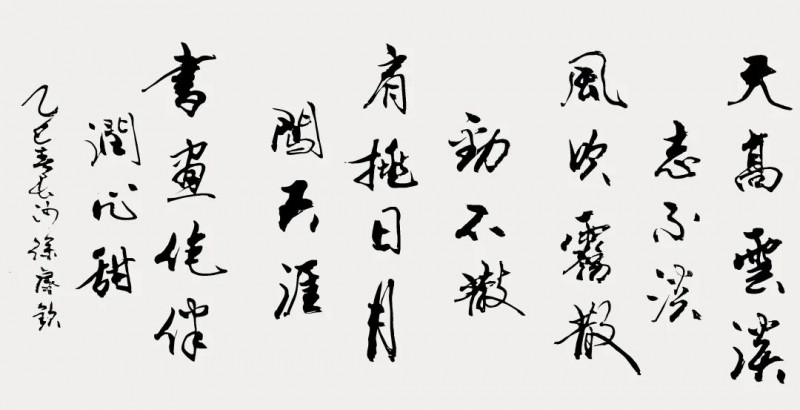 天髙雲淡
志不淡
風吹霧散
勁不散
肩挑日月
闖天涯
書畫作伴
潤心甜
乙巳春長沙徐